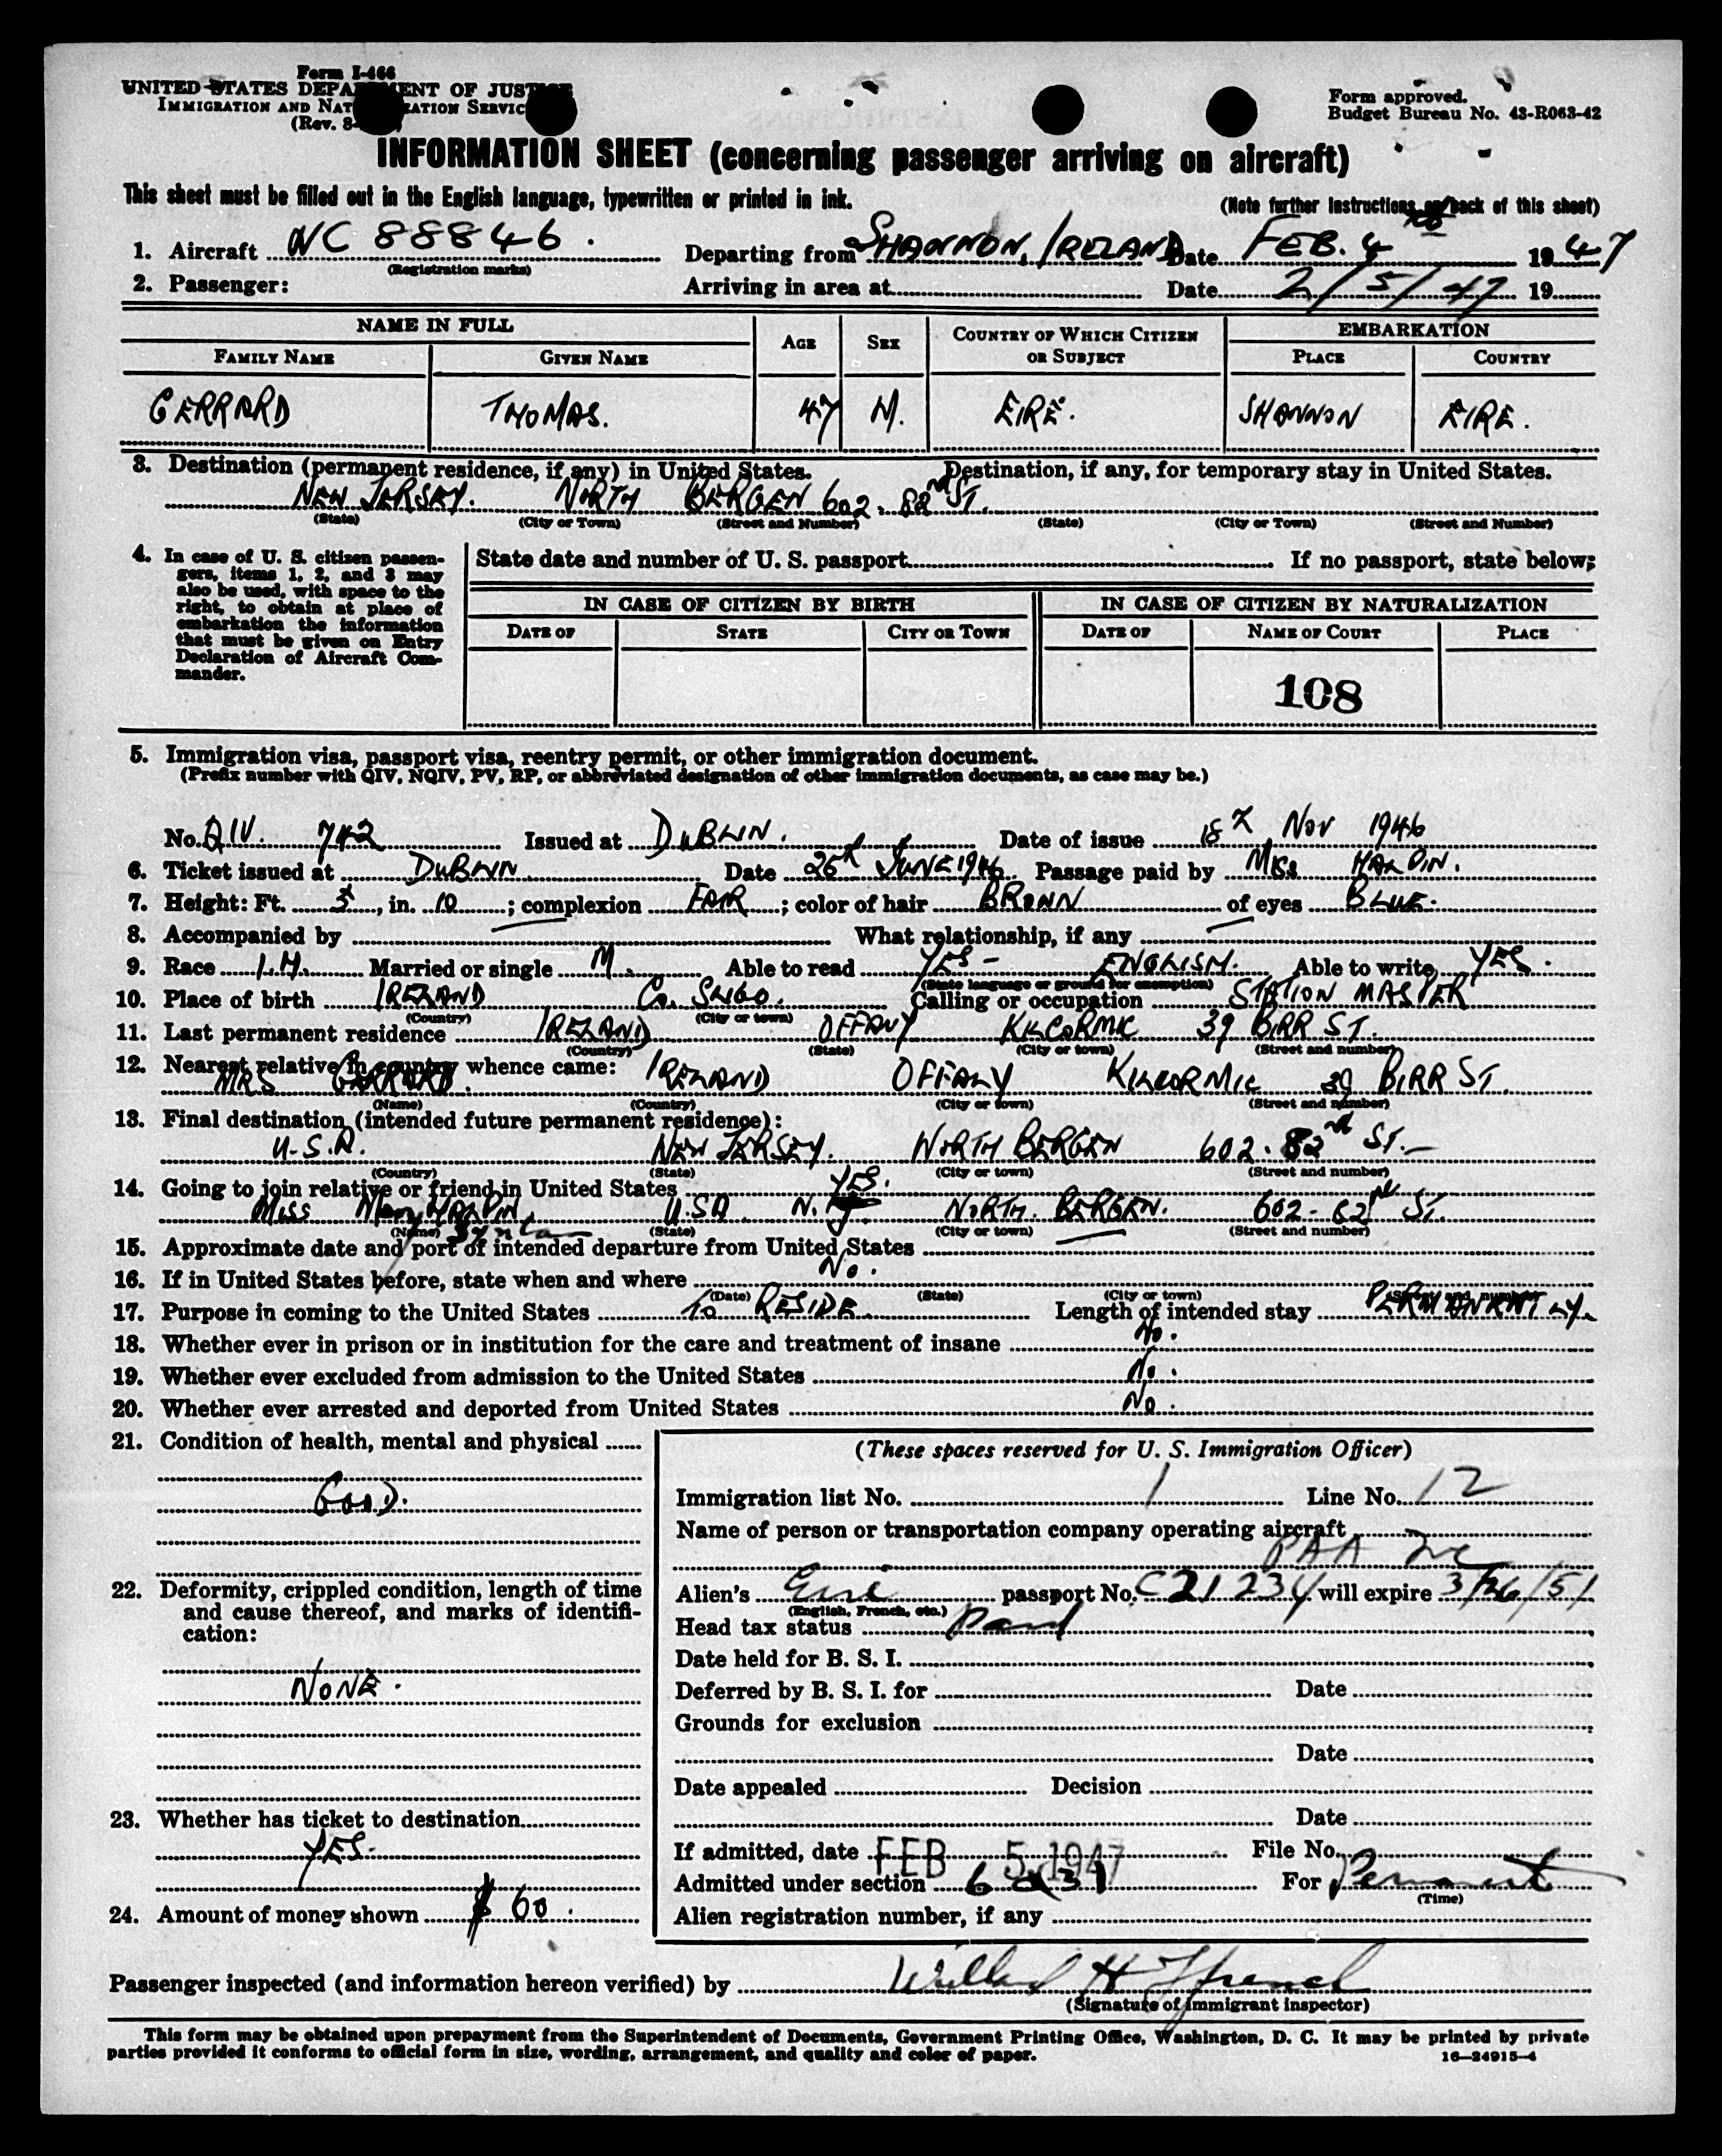 Form I-466
UNITED STATES DEPARTMENT OF JUSTICE
IMMIGRATION AND NATURALIZATION SERVICE
(Rev. 8-
Form approved.
Budget Bureau No. 43-R063-42
INFORMATION SHEET (concerning passenger arriving on aircraft)
This sheet must be filled out in the English language, typewritten or printed in ink.
(Note further instructions on back of this sheet)
1. Aircraft NC 88846. Departing from SHANNON, IRELAND Date FEB. 4 1947
(Registration marks)
2. Passenger: Arriving in area at Date 2/5/47 19
NAME IN FULL AGE SEX COUNTRY OF WHICH CITIZEN OR SUBJECT EMBARKATION
FAMILY NAME GIVEN NAME PLACE COUNTRY
GERRARD THOMAS. 47 M. EIRE. SHANNON EIRE.
3. Destination (permanent residence, if any) in United States. Destination, if any, for temporary stay in United States.
NEW JERSEY. NORTH BERGEN 602. 82nd ST.
(State) (City or Town) (Street and Number) (State) (City or Town) (Street and Number)
4. In case of U. S. citizen passengers, items 1, 2, and 3 may also be used, with space to the right, to obtain at place of embarkation the information that must be given on Entry Declaration of Aircraft Commander.
State date and number of U. S. passport If no passport, state below:
IN CASE OF CITIZEN BY BIRTH IN CASE OF CITIZEN BY NATURALIZATION
DATE OF STATE CITY OR TOWN DATE OF NAME OF COURT PLACE
108
5. Immigration visa, passport visa, reentry permit, or other immigration document.
(Prefix number with QIV, NQIV, PV, RP, or abbreviated designation of other immigration documents, as case may be.)
No. QIV. 742 Issued at DUBLIN. Date of issue 18th Nov 1946
6. Ticket issued at DUBLIN Date 25th JUNE 1946 Passage paid by MISS HALPIN.
7. Height: Ft. 5, in. 10; complexion FAIR; color of hair BROWN of eyes BLUE.
8. Accompanied by What relationship, if any
9. Race I.H. Married or single M. Able to read YES - ENGLISH. Able to write YES.
(State language or ground for exemption)
10. Place of birth IRELAND Co. SLIGO. Calling or occupation STATION MASTER
(Country) (City or town)
11. Last permanent residence IRELAND OFFALY KILCORMIC 39 BIRR ST.
(Country) (State) (City or town) (Street and number)
12. Nearest relative in country whence came: IRELAND OFFALY KILCORMIC 39 BIRR ST.
MRS GERRARD.
(Name) (Country) (City or town) (Street and number)
13. Final destination (intended future permanent residence):
U.S.A. NEW JERSEY. NORTH BERGEN 602. 82nd ST.-
(Country) (State) (City or town) (Street and number)
14. Going to join relative or friend in United States YES.
Miss Mary HALPIN. U.S.A N.J NORTH. BERGEN. 602-82nd ST.
(Name) (State) (City or town) (Street and number)
15. Approximate date and port of intended departure from United States
16. If in United States before, state when and where No.
(Date) (State) (City or town) (Street and number)
17. Purpose in coming to the United States To RESIDE. Length of intended stay PERMANENTLY.
18. Whether ever in prison or in institution for the care and treatment of insane No.
19. Whether ever excluded from admission to the United States No.
20. Whether ever arrested and deported from United States No.
21. Condition of health, mental and physical
GOOD.
22. Deformity, crippled condition, length of time and cause thereof, and marks of identification:
NONE.
23. Whether has ticket to destination
YES.
24. Amount of money shown $ 60.
(These spaces reserved for U. S. Immigration Officer)
Immigration list No. 1 Line No. 12
Name of person or transportation company operating aircraft
PAA Inc
Alien's Eire passport No. C21234 will expire 3/26/51
(English, French, etc.)
Head tax status Paid
Date held for B. S. I.
Deferred by B. S. I. for Date
Grounds for exclusion
Date
Date appealed Decision
Date
If admitted, date FEB 5 1947 File No.
Admitted under section 6 a 31 For Permanent
(Time)
Alien registration number, if any
Passenger inspected (and information hereon verified) by Willard H Ffrench
(Signature of immigrant inspector)
This form may be obtained upon prepayment from the Superintendent of Documents, Government Printing Office, Washington, D. C. It may be printed by private
parties provided it conforms to official form in size, wording, arrangement, and quality and color of paper.
16—24915-4